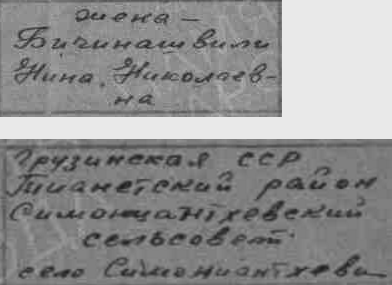 жена –
Бичинашвили
Нина Николаев-
на
Грузинская ССР
Тианетский район
Симониантхевский
сельсовет
село Симониантхеви